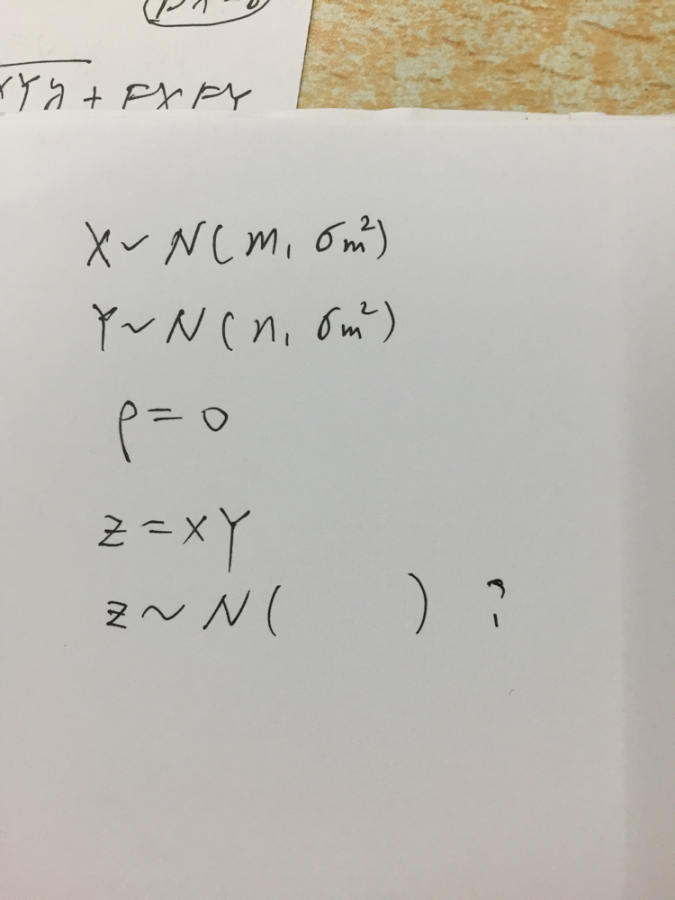 XYY + FXFY
X~N(m, σm²)
Y~N(n, σm²)
ρ=0
z=XY
z~N( ) ?